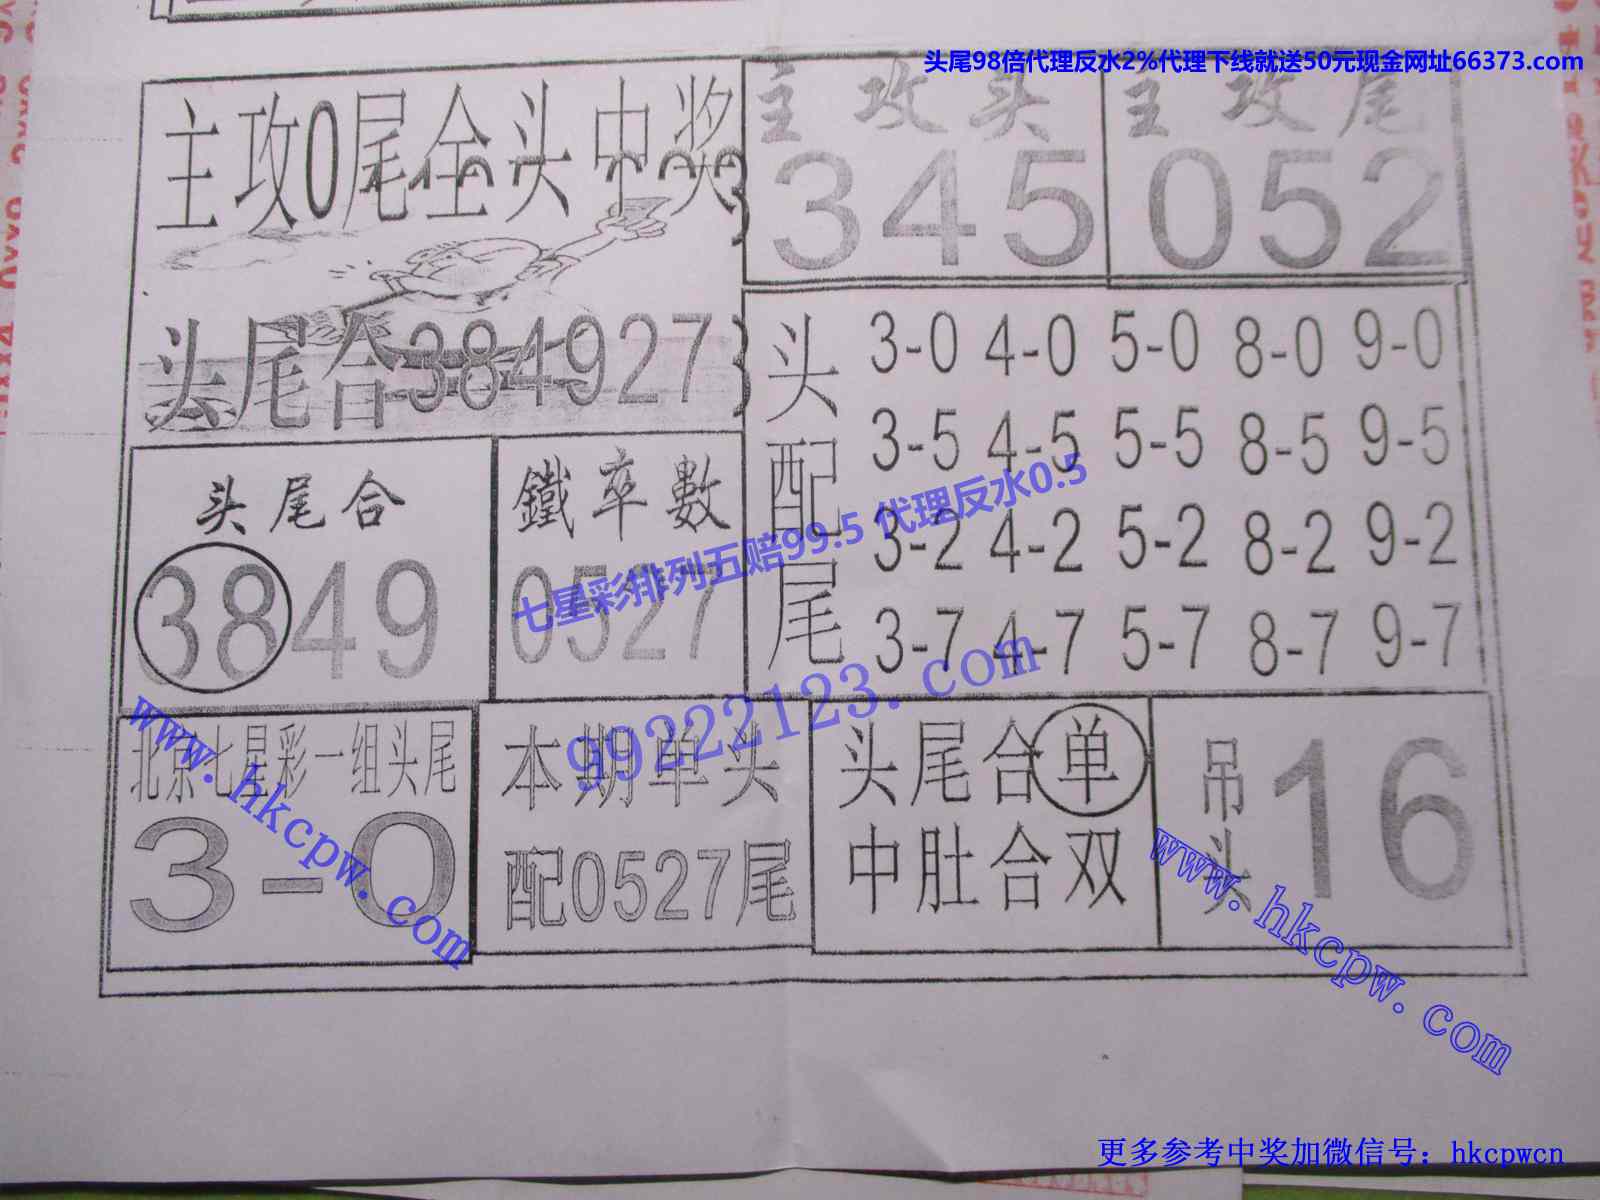 头尾98倍代理反水2%代理下线就送50元现金网址66373.com
主攻0尾全头中奖
主攻头
345
主攻尾
052
头尾合384927
头配尾
3-0 4-0 5-0 8-0 9-0
3-5 4-5 5-5 8-5 9-5
3-2 4-2 5-2 8-2 9-2
3-7 4-7 5-7 8-7 9-7
头尾合
3849
鐵率數
0527
七星彩排列五赔99.5 代理反水0.5
99222123.com
北京七星彩一组头尾
3-0
本期单头
配0527尾
头尾合单
中肚合双
吊头
16
www.hkcpw.com
www.hkcpw.com
更多参考中奖加微信号：hkcpwcn